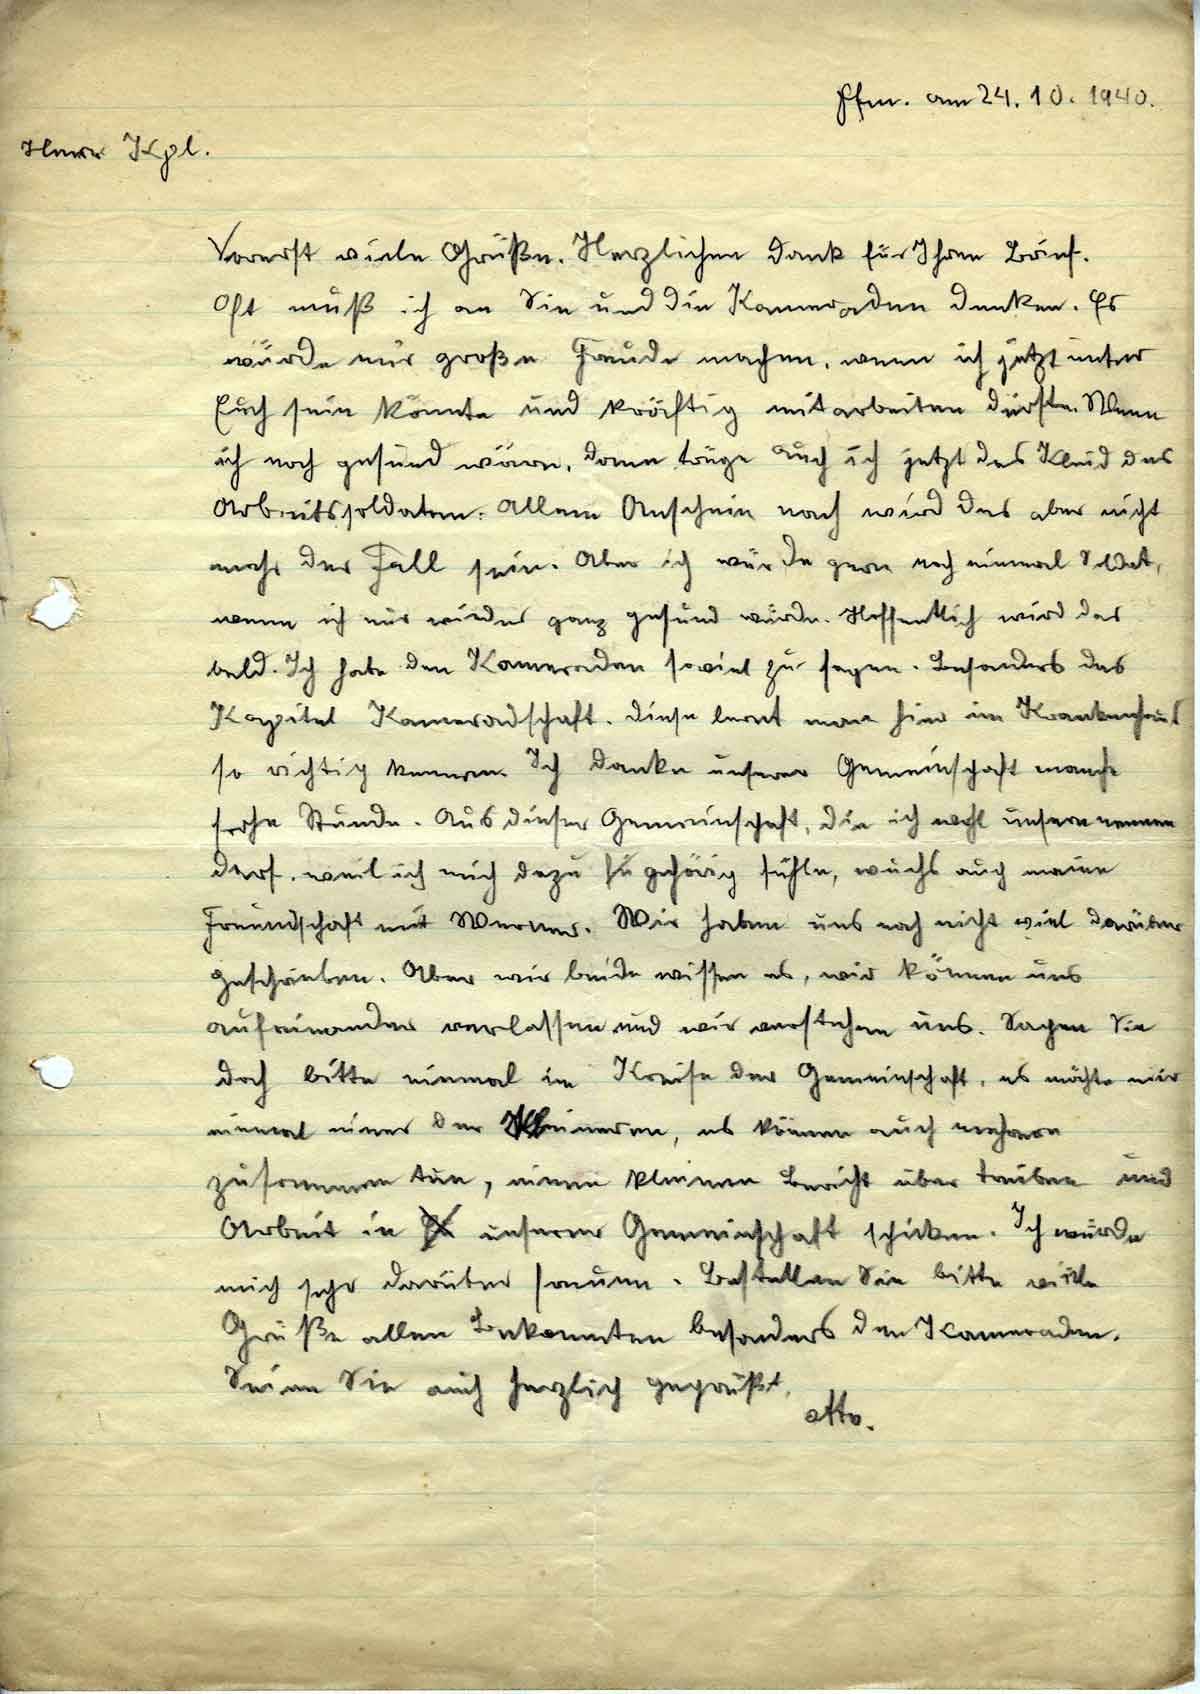 Ffm. am 24.10.1940.
Herr Kpl.
Vorerst viele Grüße. Herzlichen Dank für Ihren Brief.
Oft muß ich an Sie und die Kameraden denken. Es
würde mir große Freude machen, wenn ich jetzt unter
Euch sein könnte und kräftig mitarbeiten dürfte. Wenn
ich noch gesund wäre, dann trüge auch ich jetzt das Kleid des
Arbeitssoldaten. Allem Anschein nach wird das aber nicht
mehr der Fall sein. Aber ich würde gern noch einmal Soldat,
wenn ich nur wieder ganz gesund würde. Hoffentlich wird das
bald. Ich habe den Kameraden soviel zu sagen. Besonders das
Kapitel Kameradschaft. Diese lernt man hier im Krankenhaus
so richtig kennen. Ich danke unserer Gemeinschaft manche
frohe Stunde. Aus dieser Gemeinschaft, die ich wohl unsere nennen
darf, weil ich mich dazu gehörig fühle, wuchs auch meine
Freundschaft mit Werner. Wir haben uns noch nicht viel darüber
geschrieben. Aber wir beide wissen es, wir können uns
aufeinander verlassen und wir verstehen uns. Sagen Sie
doch bitte einmal im Kreise der Gemeinschaft, es möchte mir
einmal einer der Kleineren, es können auch mehrere
zusammen tun, einen kleinen Bericht über treiben und
Arbeit in unserer Gemeinschaft schicken. Ich würde
mich sehr darüber freuen. Bestellen Sie bitte viele
Grüße allen Bekannten besonders den Kameraden.
Seien Sie auch herzlich gegrüßt.
Otto.